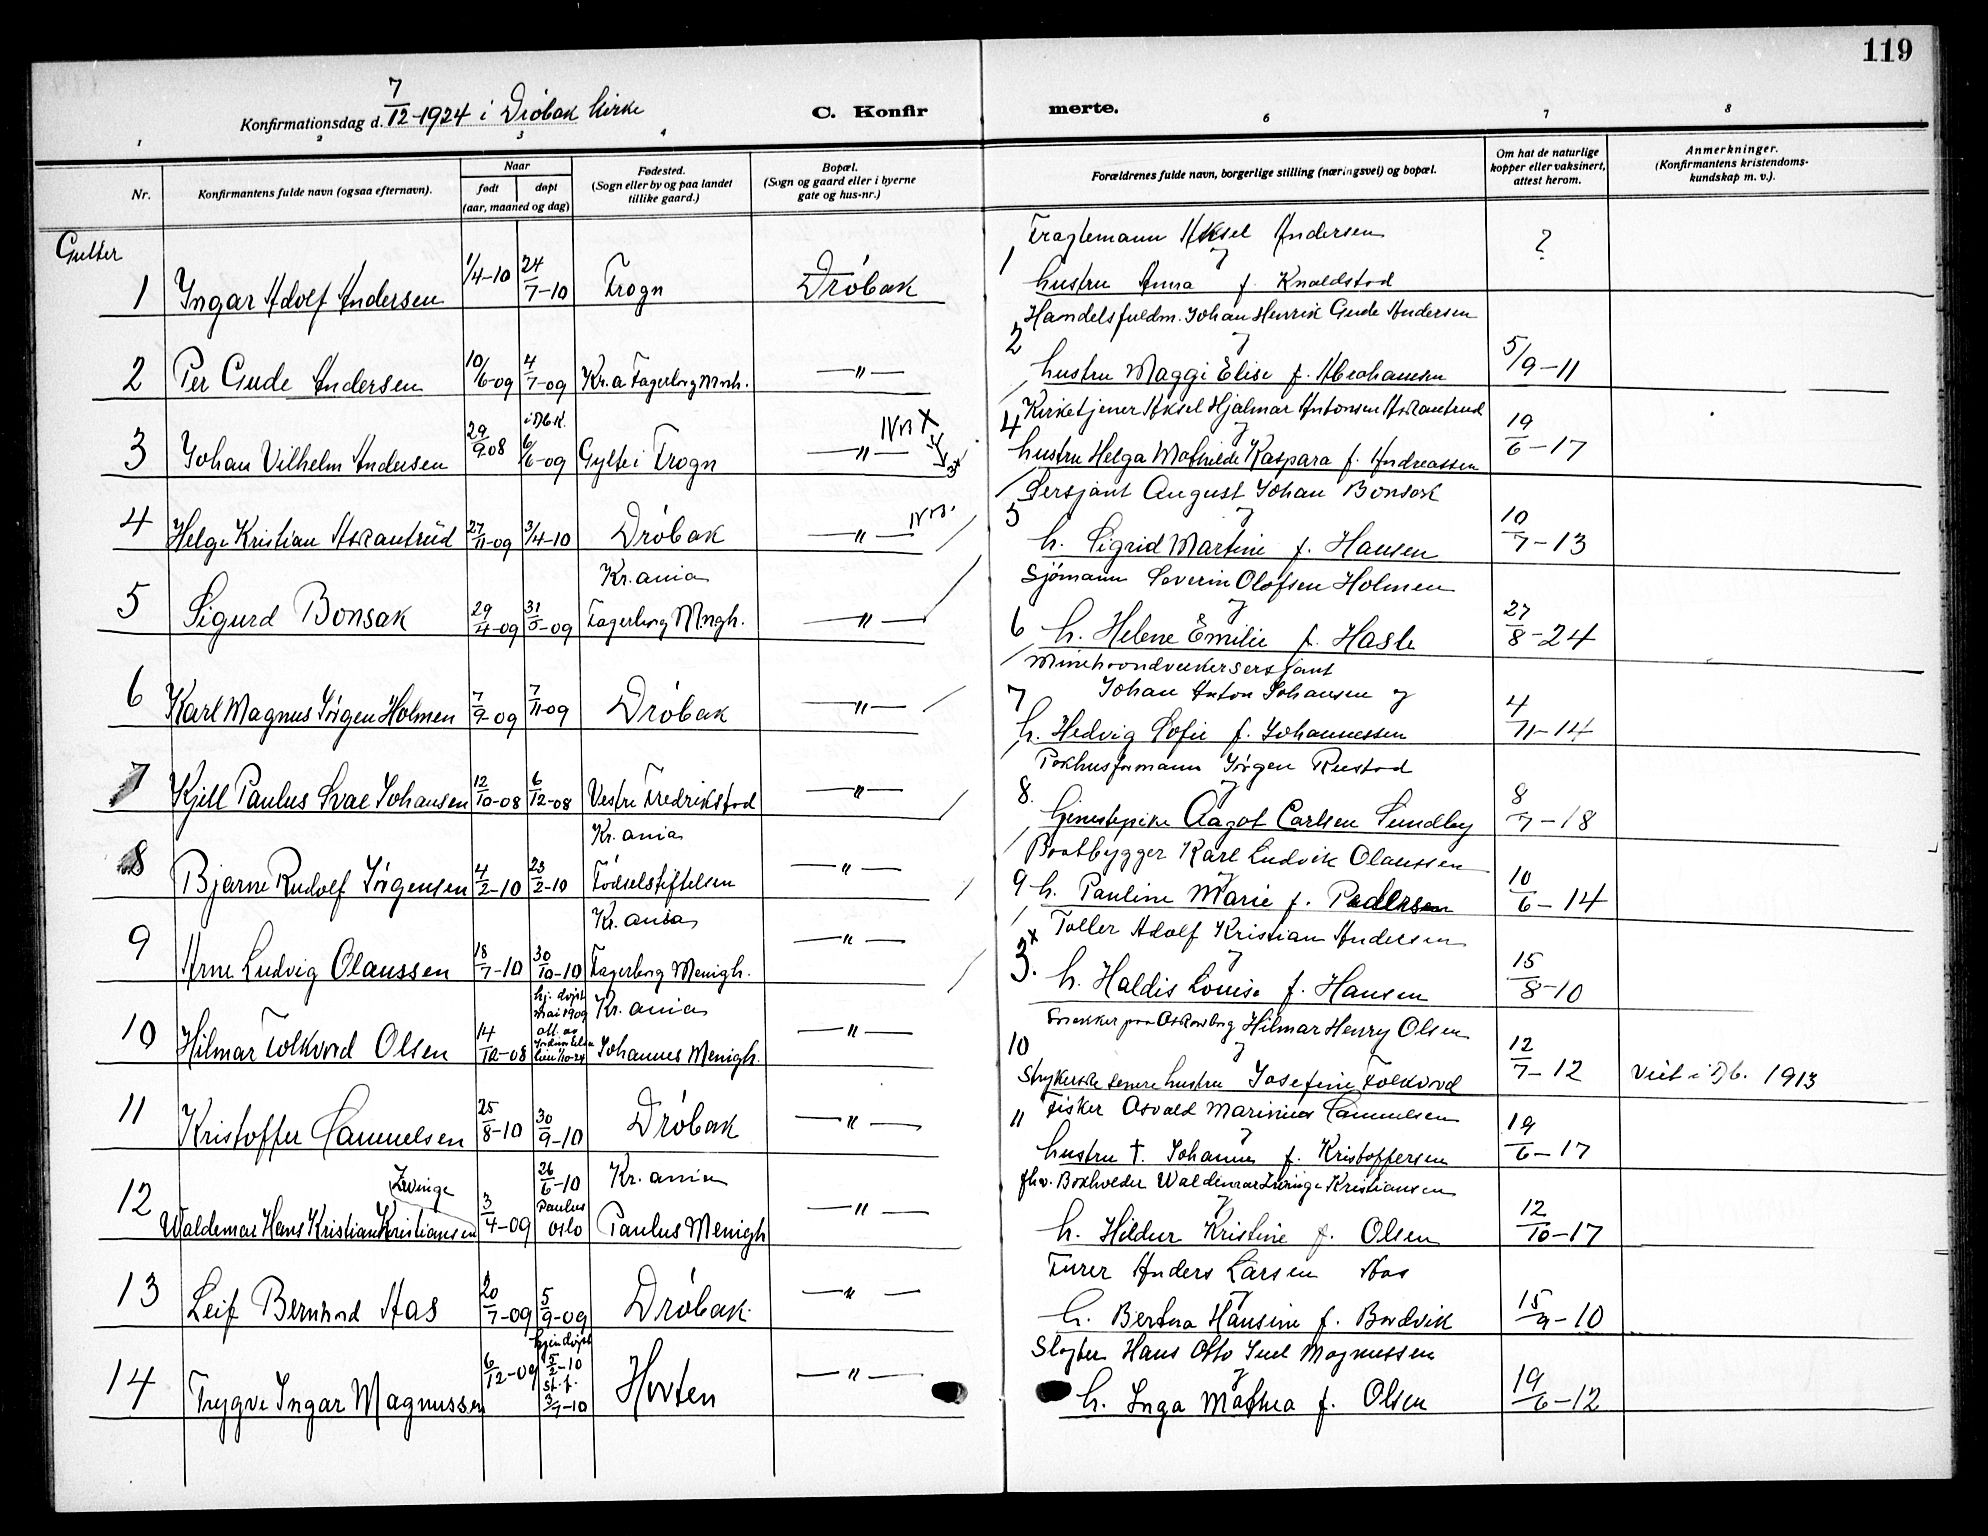 119
Konfirmationsdag d. 7/12-1924 i Drøbak kirke
C. Konfirmerte.
1 2 3 4 6 7 8
Nr.
Konfirmantens fulde navn (ogsaa efternavn).
Naar
født døpt
(aar, maaned og dag)
Fødested.
(Sogn eller by og paa landet
tillike gaard.)
Bopæl.
(Sogn og gaard eller i byerne
gate og hus-nr.)
Forældrenes fulde navn, borgerlige stilling (næringsvei) og bopæl.
Om hat de naturlige
kopper eller vaksinert,
attest herom.
Anmerkninger.
(Konfirmantens kristendoms-
kundskap m. v.).
Gutter
1 Yngar Adolf Andersen 1/4-10 24/7-10 Frogn Drøbak
1 Fragtemann Aksel Andersen
og
hustru Anna f. Knaldstad
?
2 Per Gude Andersen 10/6-09 4/7-09 Kr.a Fagerborg Mnh. —"—
2 Handelsfuldm. Johan Henrik Gude Andersen
og
hustru Maggi Elise f. Abrahamsen
5/9-11
3 Johan Vilhelm Andersen 29/9 08 6/6-09 Gylte i Frogn —"—
4 Kirketjener Aksel Hjalmar Antonsen Askautrud
og
hustru Helga Mathilde Kaspara f. Andreassen
19/6-17
4 Helge Kristian Askautrud 27/11-09 3/4-10 Drøbak —"—
5 Sersjant August Johan Bonsak
og
h. Sigrid Martine f. Hansen
10/7-13
5 Sigurd Bonsak 29/4-09 31/5-09 Kr.ania
Fagerborg Mngh. —"—
6 Sjømann Severin Olafsen Holmen
og
h. Helene Emilie f. Hasle
27/8-24
6 Karl Magnus Jørgen Holmen 7/9-09 7/11-09 Drøbak —"—
7 Minehaandverkersersjant
Johan Anton Johansen og
h. Hedvig Sofie f. Johannessen
4/11-14
7 Kjell Paulus Svae Johansen 12/10-08 6/12-08 Vestre Fredrikstad —"—
8. Pakhusformann Jørgen Rustad
og
tjenestepike Aagot Carlsen Sundby
8/7-18
8 Bjarne Rudolf Jørgensen 4/2-10 23/2-10 Kr.ania
Fødselsstiftelsen —"—
9 Baatbygger Karl Ludvik Olaussen
og
h. Pauline Marie f. Pedersen
10/6-14
9 Arne Ludvig Olaussen 18/7-10 30/10-10 Kr.ania
Fagerborg Menigh. —"—
3. x Toller Adolf Kristian Andersen
og
h. Haldis Louise f. Hansen
15/8-10
10 Hilmar Folkvord Olsen 14/12-08 hj. døpt
mai 1909 Kr. ania
Johannes Menigh. —"—
10 Hilmar Henry Olsen
og
Strykerske senere hustru Josefine Folkvord
12/7-12 Viet i Db. 1913
11 Kristoffer Samuelsen 25/8-10 30/9-10 Drøbak —"—
11 Fisker Osvald Marinius Samuelsen
og
hustru †. Johanne f. Kristoffersen
19/6-17
12 Waldemar Hans Kristian Zwinge Kristiansen 3/4-09 26/6-10
Paulus
Oslo Kr. ania
Paulus Menigh —"—
fhv. Bokholder Waldemar Zwinge Kristiansen
og
h. Hildur Kristine f. Olsen
12/10-17
13 Leif Bernhard Aas 20/7-09 5/9-09 Drøbak. —"—
Furer Anders Larsen Aas
og
h. Bertha Hansine f. Bordvik
15/9-10
14 Trygve Ingar Magnussen 6/12-09 hjemdøpt
5/2-10
st. f.
3/7-10 Horten —"—
Slagter Hans Otto Juel Magnussen
og
h. Inga Mathea f. Olsen
19/6-12